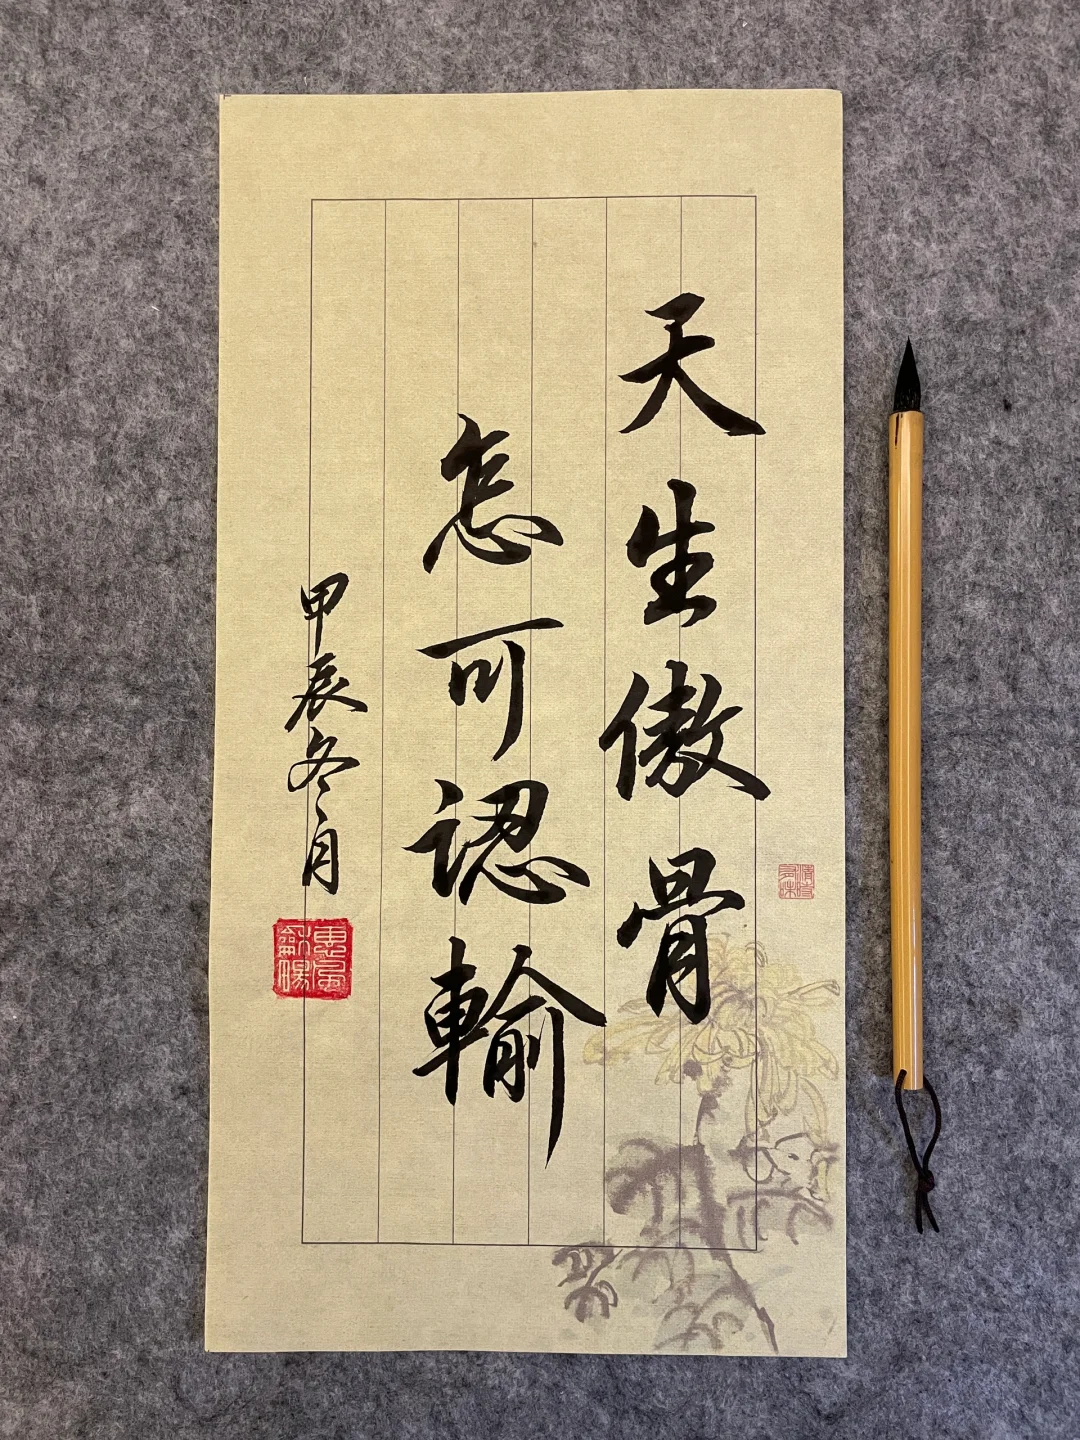 天生傲骨
怎可認輸
甲辰冬月